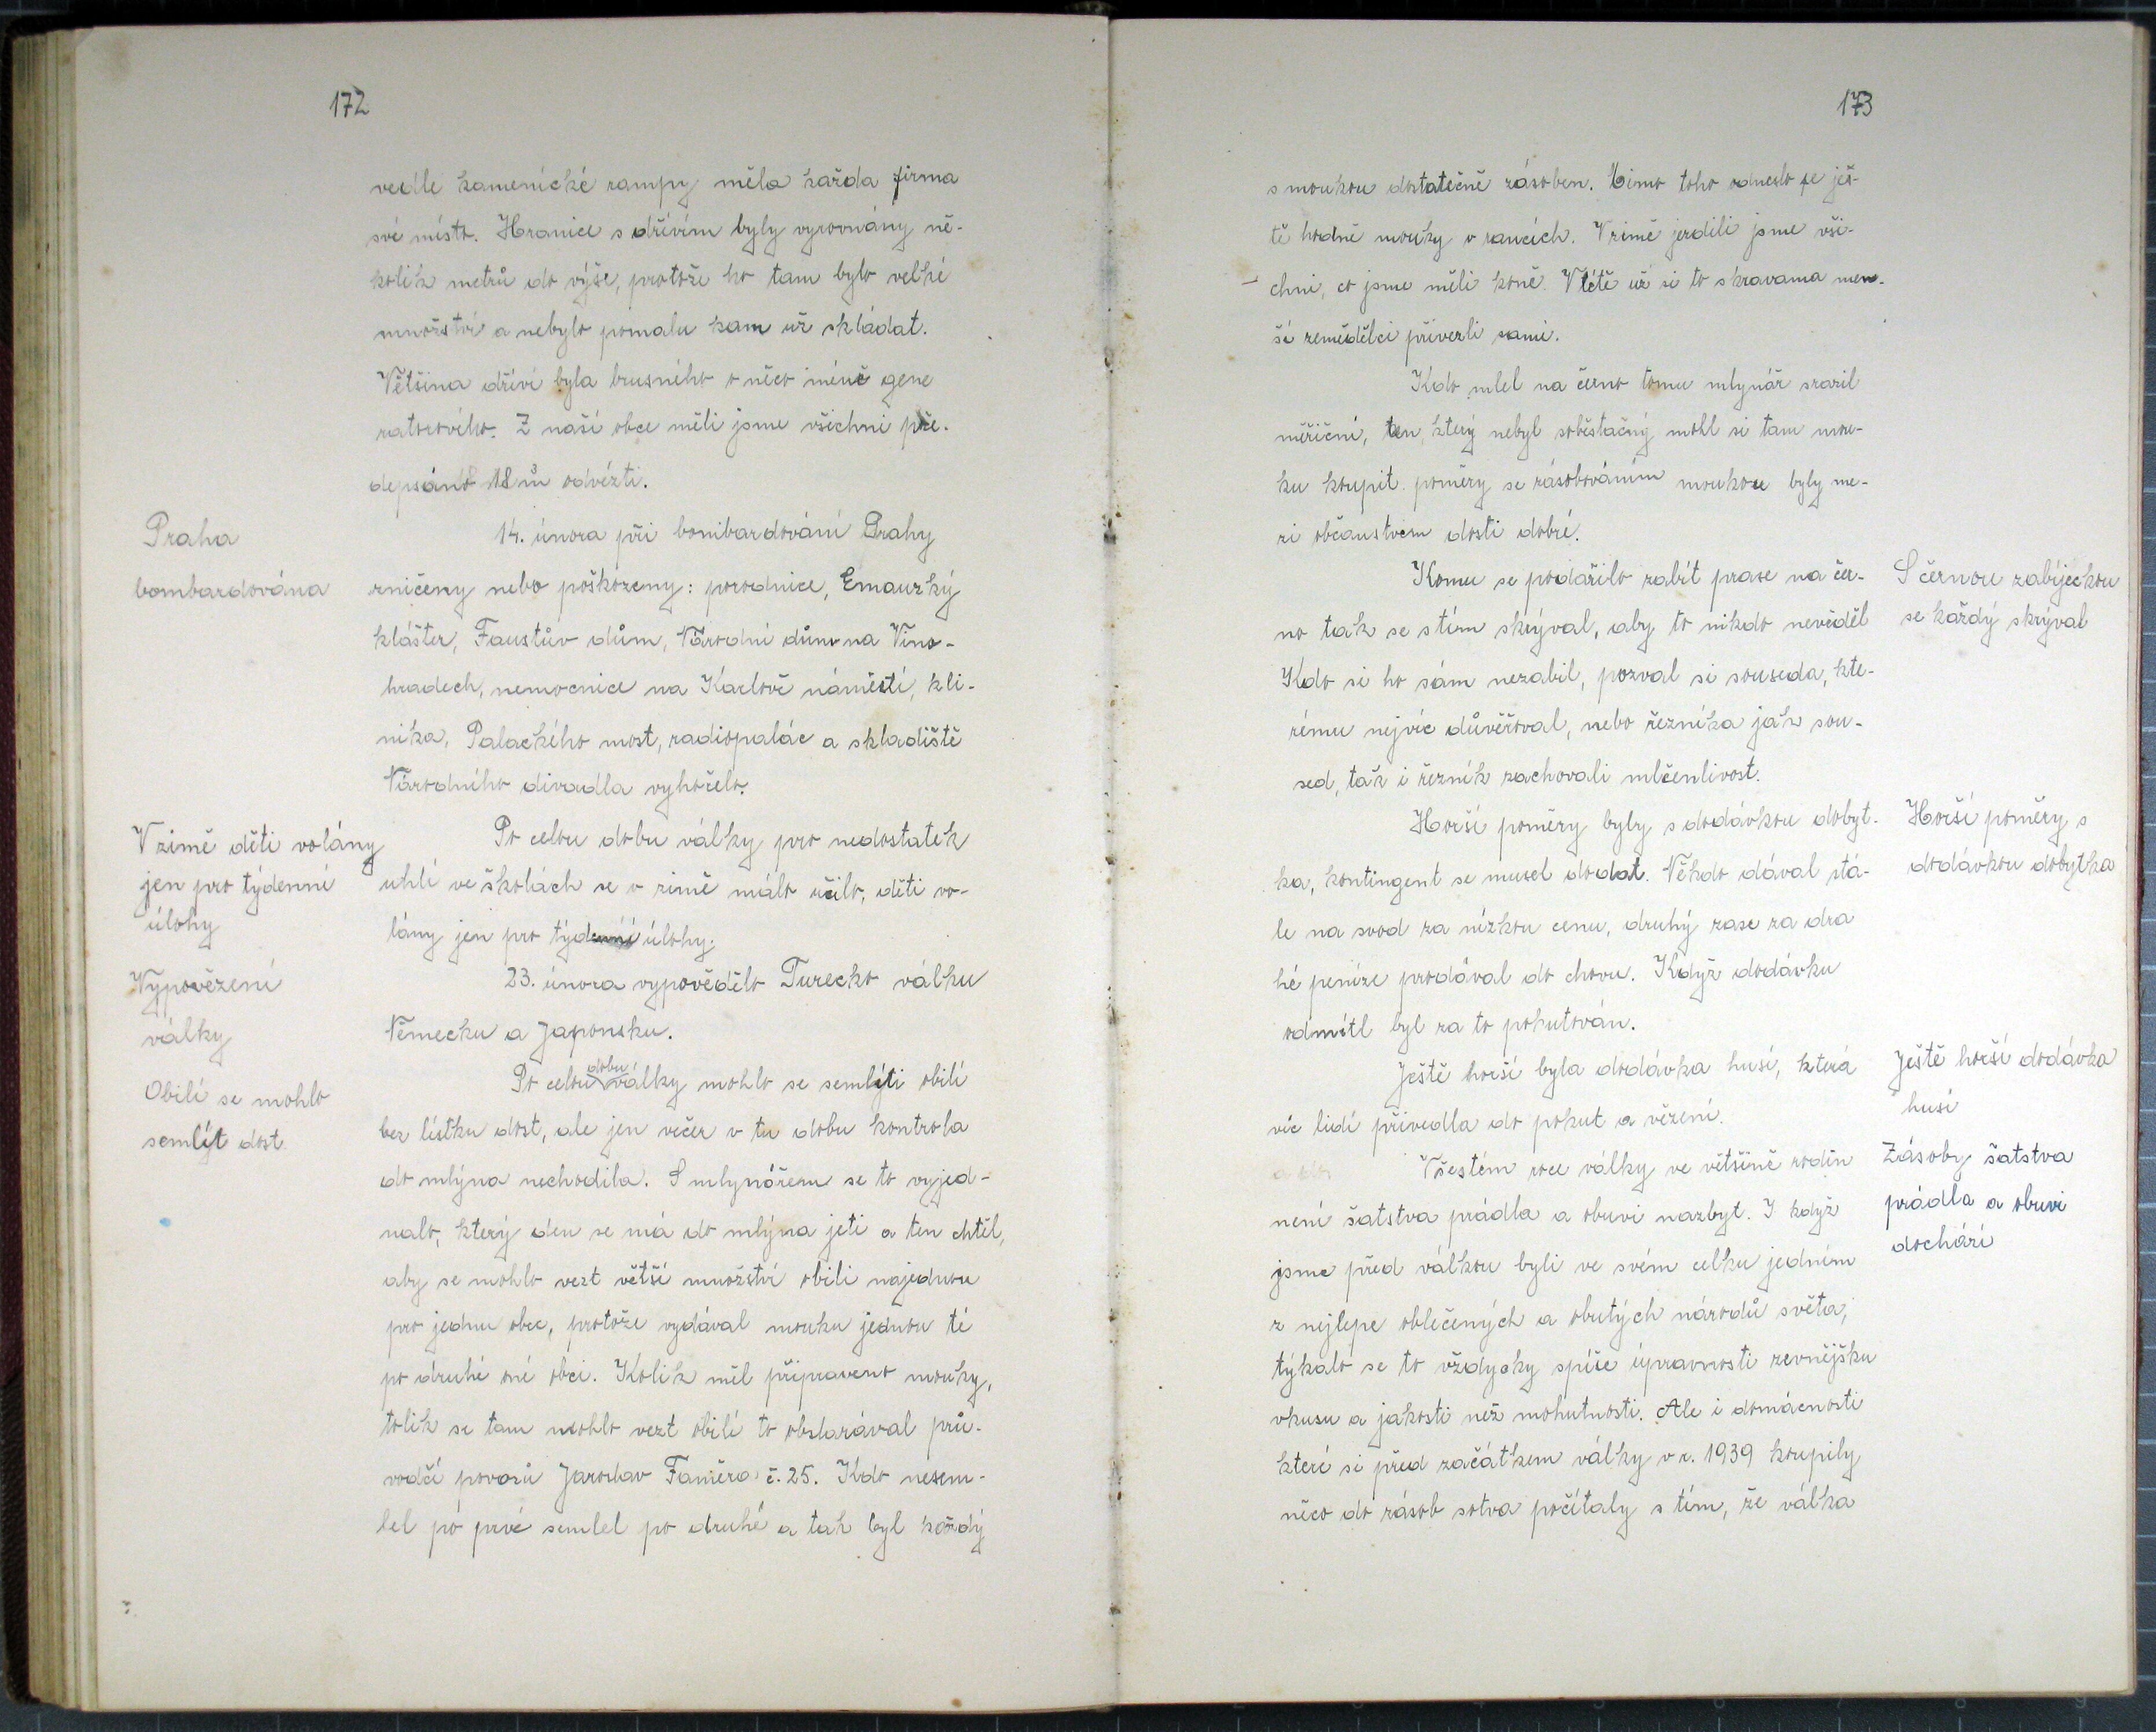 172
vedle kamenické rampy měla každa firma
své místo. Hranice s dřívím byly vyrovnány ně-
kolik metrů do výše, protože ho tam bylo velké
množství a nebylo pomalu kam už skládat.
Většina dříví byla brusného o něco méně gene
ratorového. Z naší obce měli jsme všichni pře-
depsáno 18 m³ odvézti.
Praha
bombardována
14. února při bombardování Prahy
zničeny nebo poškozeny: porodnice, Emauzký
klášter, Faustův dům, Národní dům na Vino-
hradech, nemocnice na Karlově náměstí, kli-
nika, Palackého most, radiopalác a skladiště
Národního divadla vyhořelo.
V zimě děti volány
jen pro týdenní
úlohy
Po celou dobu války pro nedostatek
uhlí ve školách se v zimě málo učilo, děti vo-
lány jen pro týdenní úlohy.
Vypovězení
války
23. února vypovědělo Turecko válku
Německu a Japonsku.
Obilí se mohlo
semlít dost.
Po celou dobu války mohlo se semlíti obilí
bez lístku dost, ale jen večer v tu dobu kontrola
do mlýna nechodila. S mlynářem se to vyjed-
nalo, který den se má do mlýna jeti a ten chtěl,
aby se mohlo vezt větší množství obilí najednou
pro jednu obec, protože vydával mouku jednou té
po druhé oné obci. Kolik měl připraveno mouky,
tolik se tam mohlo vezt obilí to obstarával prů-
vodčí povozů Jaroslav Faměra č. 25. Kdo nesem-
lel po prvé semlel po druhé a tak byl každý
173
s moukou dostatečně zásoben. Mimo toho odneslo se ješ-
tě hodně mouky v rancích. V zimě jezdili jsme vši-
chni, co jsme měli koně. V létě už si to s kravama men-
ší zemědělci přivezli sami.
Kdo mlel na černo tomu mlynář srazil
měřiční, ten, který nebyl soběstačný mohl si tam mou-
ku koupit. poměry se zásobováním moukou byly me-
zi občanstvem dosti dobré.
S černou zabíječkou
se každý skrýval
Komu se podařilo zabít prase na čer-
no tak se s tím skrýval, aby to nikdo nevěděl
Kdo si ho sám nezabil, pozval si souseda, kte-
rému nejvíc důvěřoval, nebo řezníka jak sou-
sed, tak i řezník zachovali mlčenlivost.
Horší poměry s
dodávkou dobytka
Horší poměry byly s dodávkou dobyt-
ka, kontingent se musel dodat. Někdo dával stá-
le na svod za nízkou cenu, druhý zase za dra
hé peníze prodával do chovu. Když dodávku
odmítl byl za to pokutován.
Ještě horší dodávka
husí
Ještě horší byla dodávka husí, která
víc lidí přivedla do pokut a vězení.
Zásoby šatstva
prádla a obuvi
dochází
V šestém roce války ve většině rodin
není šatstva prádla a obuvi nazbyt. I když
jsme před válkou byli ve svém celku jedním
z nejlepe oblečených a obutých národů světa,
týkalo se to vždycky spíše úpravnosti zevnějšku
vkusu a jakosti než mohutnosti. Ale i domácnosti
které si před začátkem války v r. 1939 koupily
něco do zásob sotva počítaly s tím, že válka